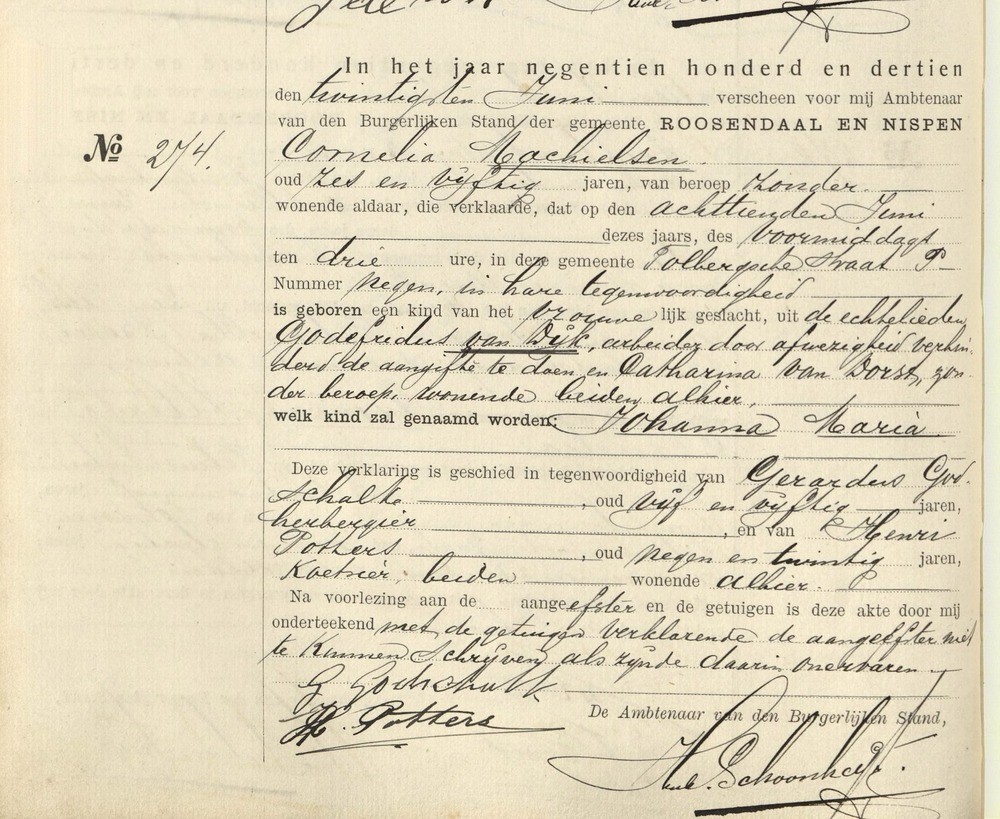 In het jaar negentien honderd en dertien
den twintigsten Juni verscheen voor mij Ambtenaar
van den Burgerlijken Stand der gemeente ROOSENDAAL EN NISPEN
No 274 Cornelia Machielsen
oud zes en vijftig jaren, van beroep zonder.
wonende aldaar, die verklaarde, dat op den achttienden Juni
dezes jaars, des voormiddags
ten drie ure, in deze gemeente Tolbergsche straat
Nummer negen, in hare tegenwoordigheid
is geboren een kind van het vrouwelijk geslacht, uit de echtelieden
Godefridus van Dijk, arbeider door afwezigheid verhin-
derd de aangifte te doen en Catharina van Dorst, zon-
der beroep, wonende beiden alhier,
welk kind zal genaamd worden: Johanna Maria
Deze verklaring is geschied in tegenwoordigheid van Gerardus God-
schalk, oud vijf en vijftig jaren,
herbergier, en van Henri
Potters, oud negen en twintig jaren,
Koetsier, beiden wonende alhier.
Na voorlezing aan de aangeefster en de getuigen is deze akte door mij
onderteekend met de getuigen verklarende de aangeefster niet
te kunnen schrijven als zijnde daarin onervaren
G Godschalk
H. Potters
De Ambtenaar van den Burgerlijken Stand,